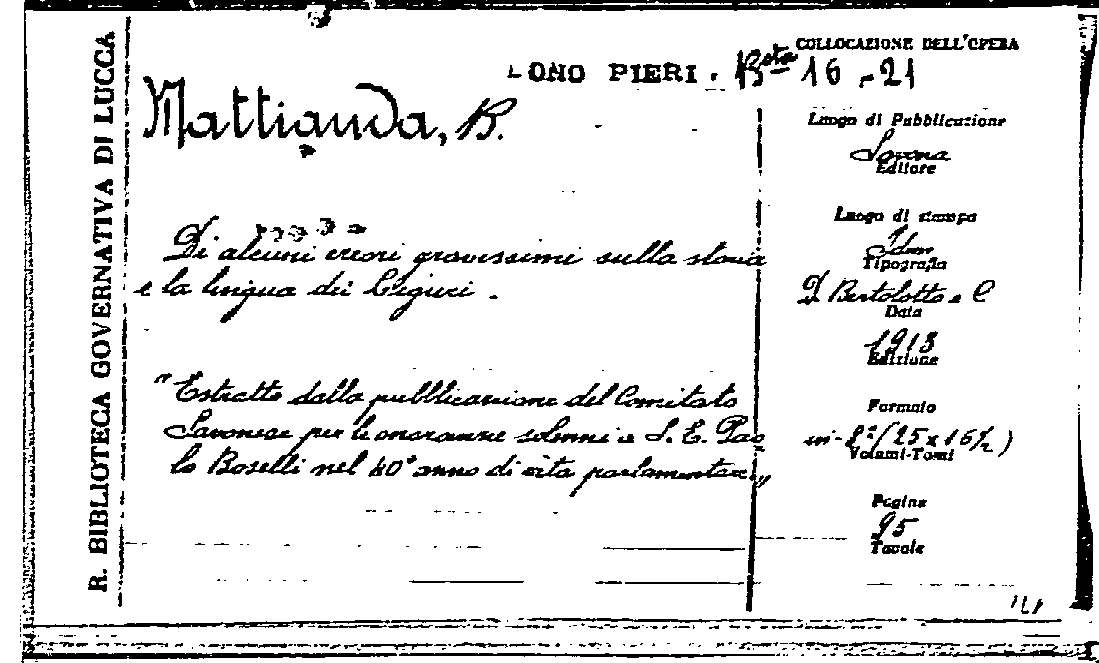 R. BIBLIOTECA GOVERNATIVA DI LUCCA
DONO PIERI. Bsta 16-21
COLLOCAZIONE DELL'OPERA
Mattianda, B.
Di alcuni errori gravissimi sulla storia
e la lingua dei Liguri.
"Estratto dalla pubblicazione del Comitato
Savonese per le onoranze solenni a S. E. Pao
lo Boselli nel 40° anno di vita parlamentare"
Luogo di Pubblicazione
Savona
Editore
Luogo di stampa
Idem
Tipografia
D. Bertolotto e C
Data
1913
Edizione
Formato
in-8° (25 x 16½)
Volumi-Tomi
Pagine
95
Tavole